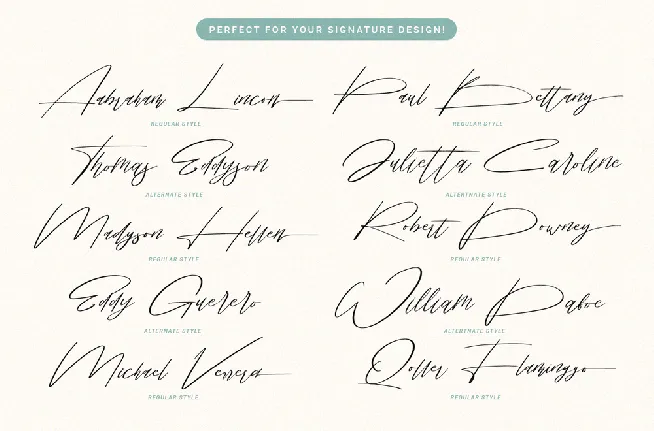 PERFECT FOR YOUR SIGNATURE DESIGN!
Aabraham Lincon Paul Bettany
REGULAR STYLE REGULAR STYLE
Thomas Eddyson Julietta Caroline
ALTERNATE STYLE ALTERTNATE STYLE
Madyson Hellen Robert Downey
REGULAR STYLE REGULAR STYLE
Eddy Guerero William Daboe
ALTERNATE STYLE ALTERTNATE STYLE
Michael Venera Qoller Flaminggo
REGULAR STYLE REGULAR STYLE